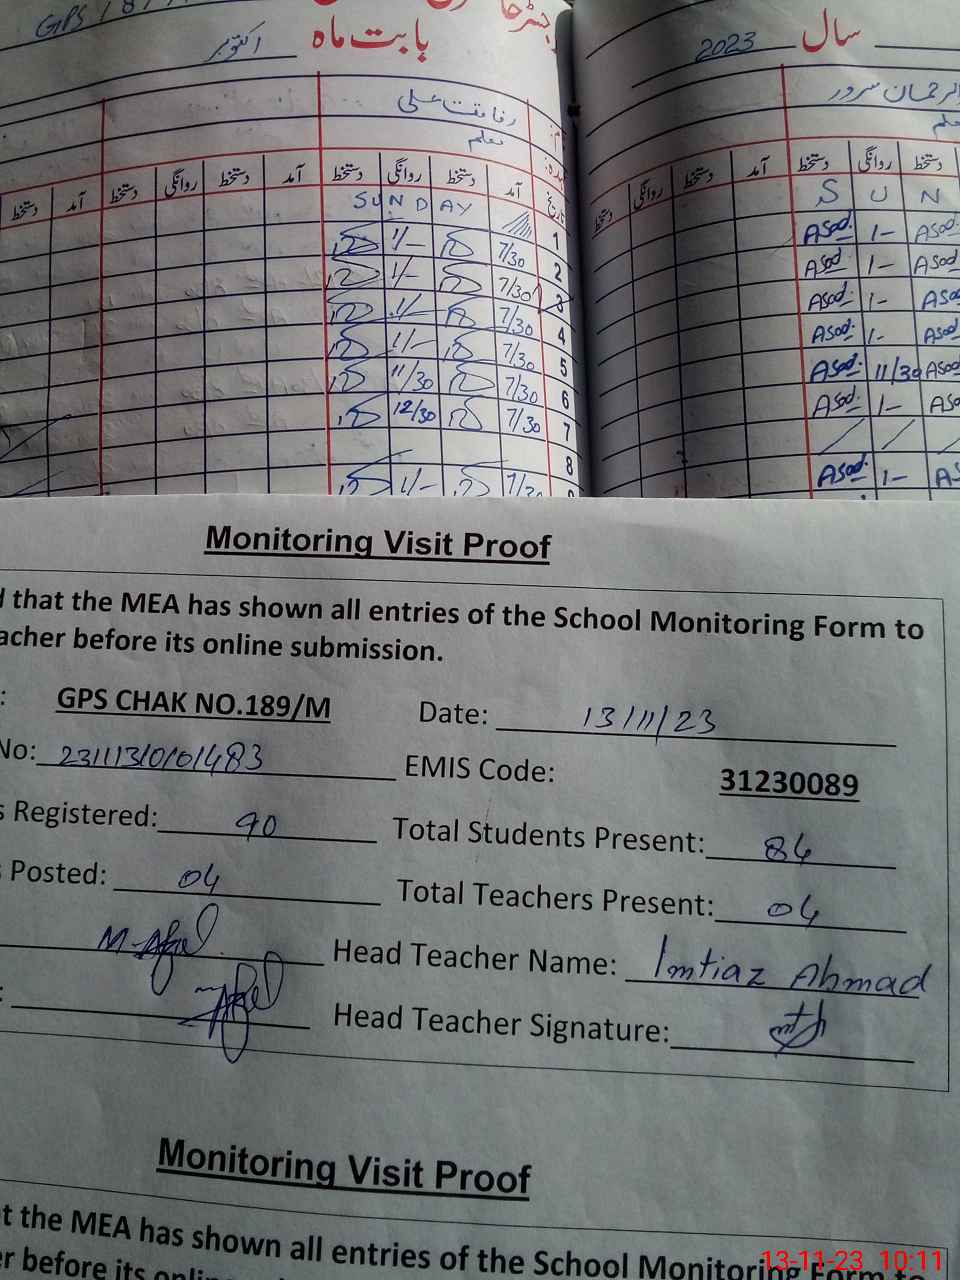 GPS / 8
بابت ماہ اکتوبر
سال 2023
رفاقت علی
الرحمان سرور
معلم
معلم
تاریخ آمد دستخط روانگی دستخط آمد دستخط روانگی دستخط آمد دستخط
دستخط روانگی دستخط آمد دستخط روانگی دستخط
1 SUNDAY
S U N
2 7/30 1/-
Asad 1- Asad
3 7/30 1/-
Asad 1- Asad
4 7/30 1/-
Asad 1- Asad
5 7/30 1/-
Asad 1- Asad
6 7/30 11/30
Asad 11/30 Asad
7 7/30 12/30
Asad 1- Asad
8
7/30 1/-
Asad 1-
Monitoring Visit Proof
that the MEA has shown all entries of the School Monitoring Form to
acher before its online submission.
: GPS CHAK NO.189/M Date: 13/11/23
No: EMIS Code: 31230089
s Registered: 90 Total Students Present: 84
Posted: 04 Total Teachers Present: 04
Head Teacher Name: Imtiaz Ahmad
: Head Teacher Signature:
Monitoring Visit Proof
t the MEA has shown all entries of the School Monitoring Form
er before its online
13-11-23 10:11